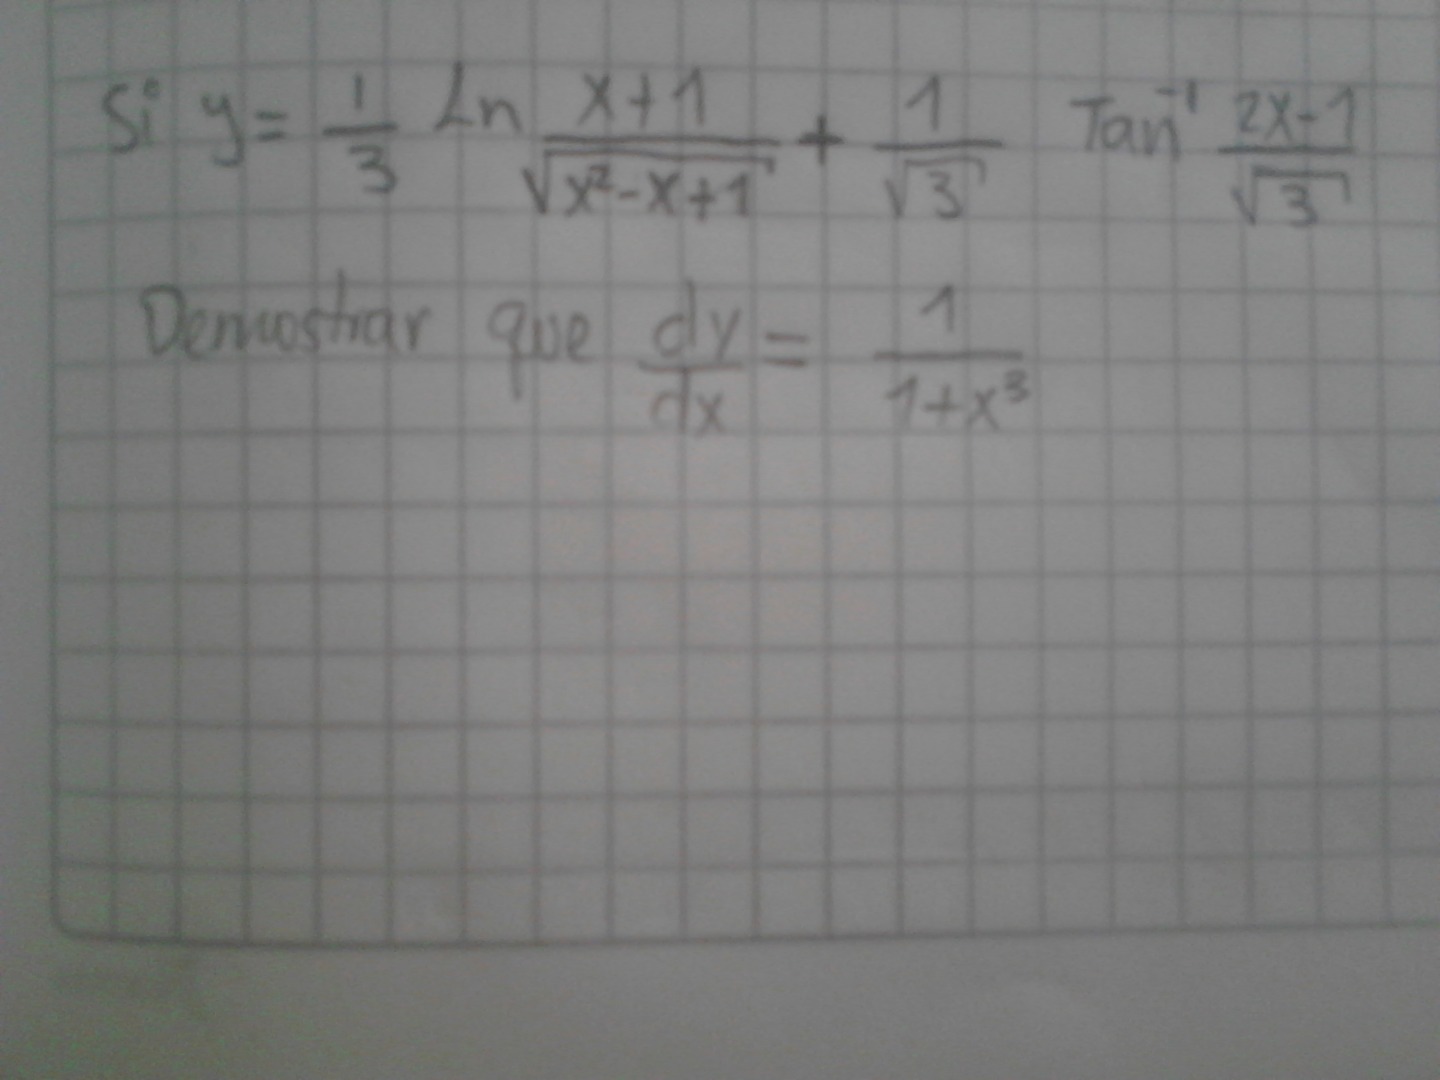 Si y = 1/3 Ln (x+1)/√(x²-x+1) + 1/√3 Tan⁻¹ (2x-1)/√3
Demostrar que dy/dx = 1/(1+x³)